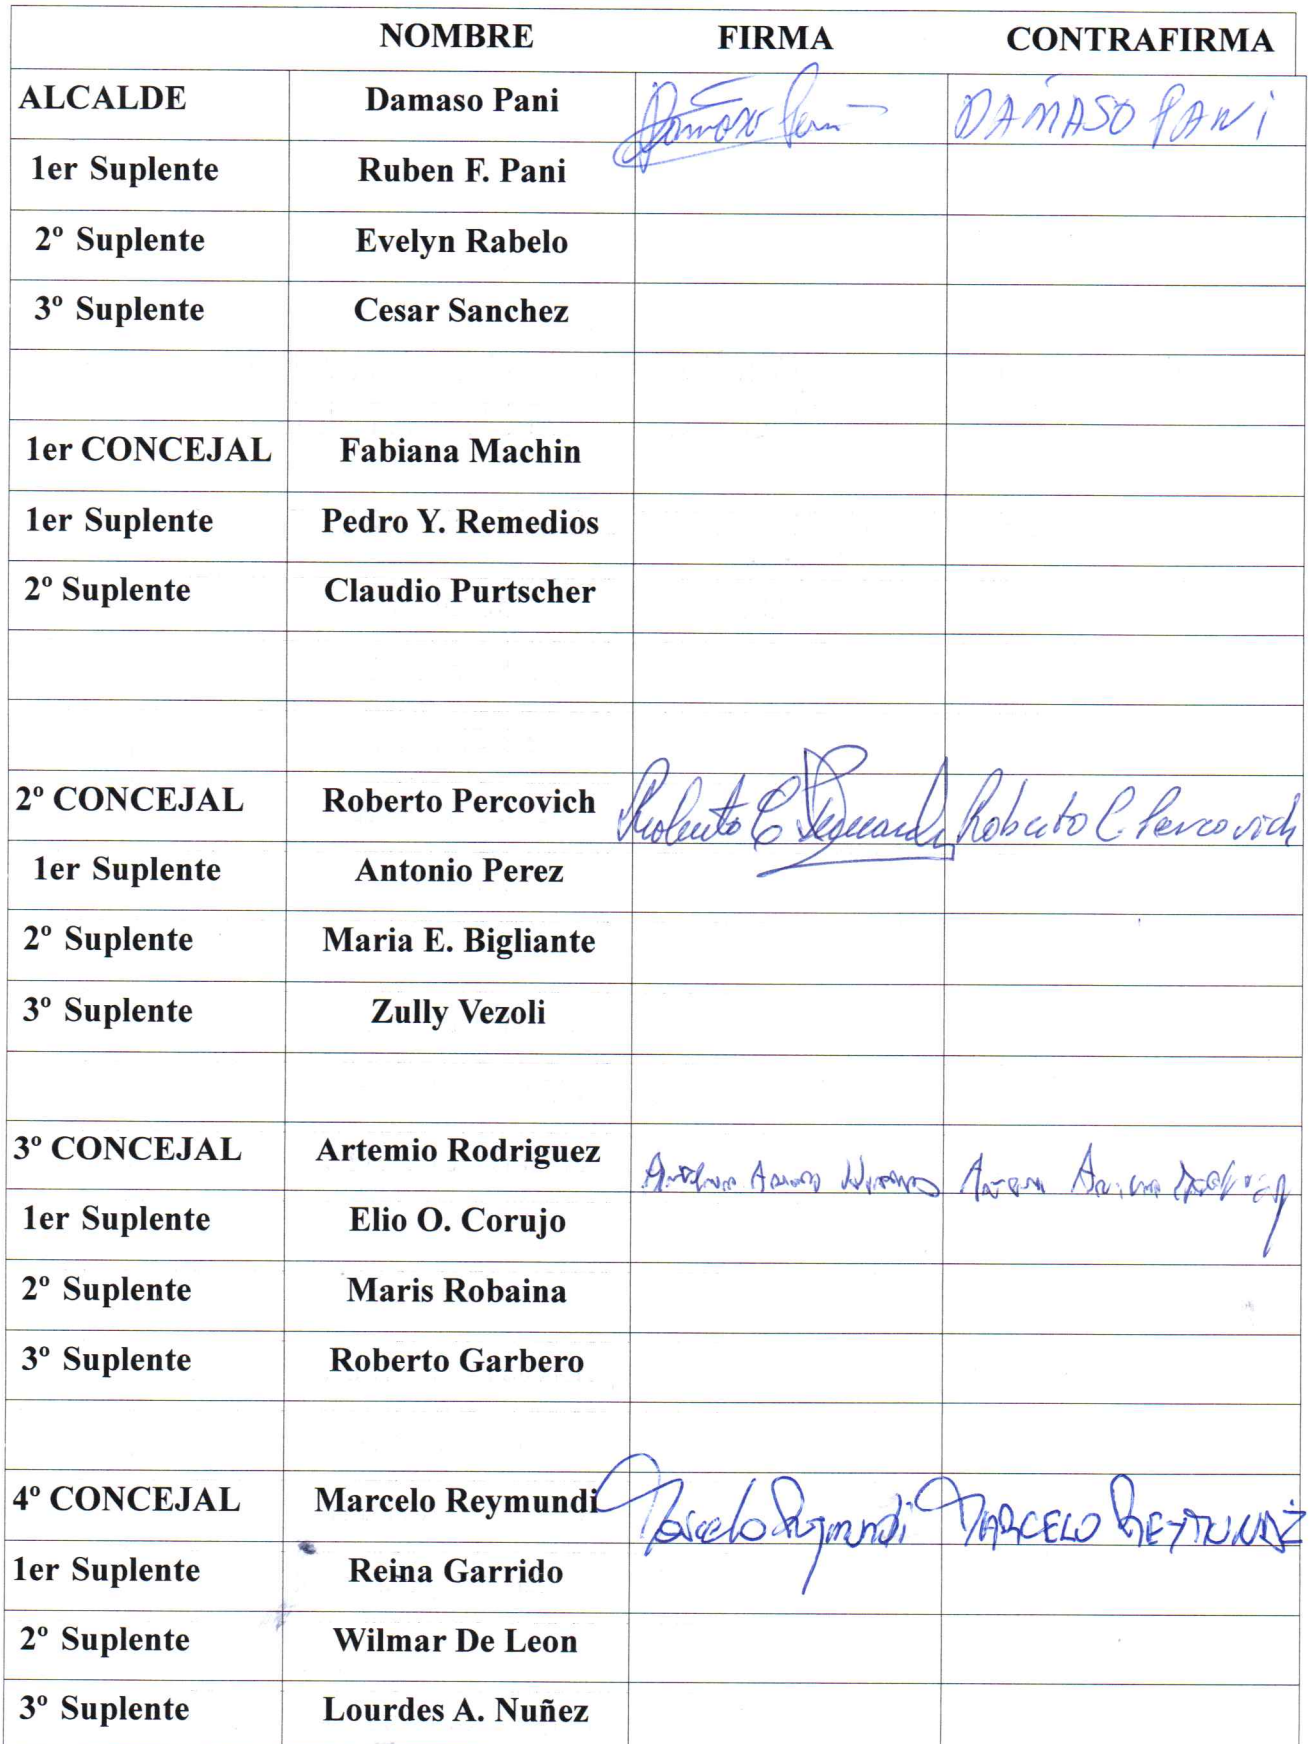 NOMBRE FIRMA CONTRAFIRMA
ALCALDE Damaso Pani Damaso Pani DAMASO PANI
1er Suplente Ruben F. Pani
2º Suplente Evelyn Rabelo
3º Suplente Cesar Sanchez
1er CONCEJAL Fabiana Machin
1er Suplente Pedro Y. Remedios
2º Suplente Claudio Purtscher
2º CONCEJAL Roberto Percovich Roberto C Roberto C. Percovich
1er Suplente Antonio Perez
2º Suplente Maria E. Bigliante
3º Suplente Zully Vezoli
3º CONCEJAL Artemio Rodriguez
1er Suplente Elio O. Corujo
2º Suplente Maris Robaina
3º Suplente Roberto Garbero
4º CONCEJAL Marcelo Reymundi Marcelo Reymundi MARCELO REYMUNDI
1er Suplente Reina Garrido
2º Suplente Wilmar De Leon
3º Suplente Lourdes A. Nuñez